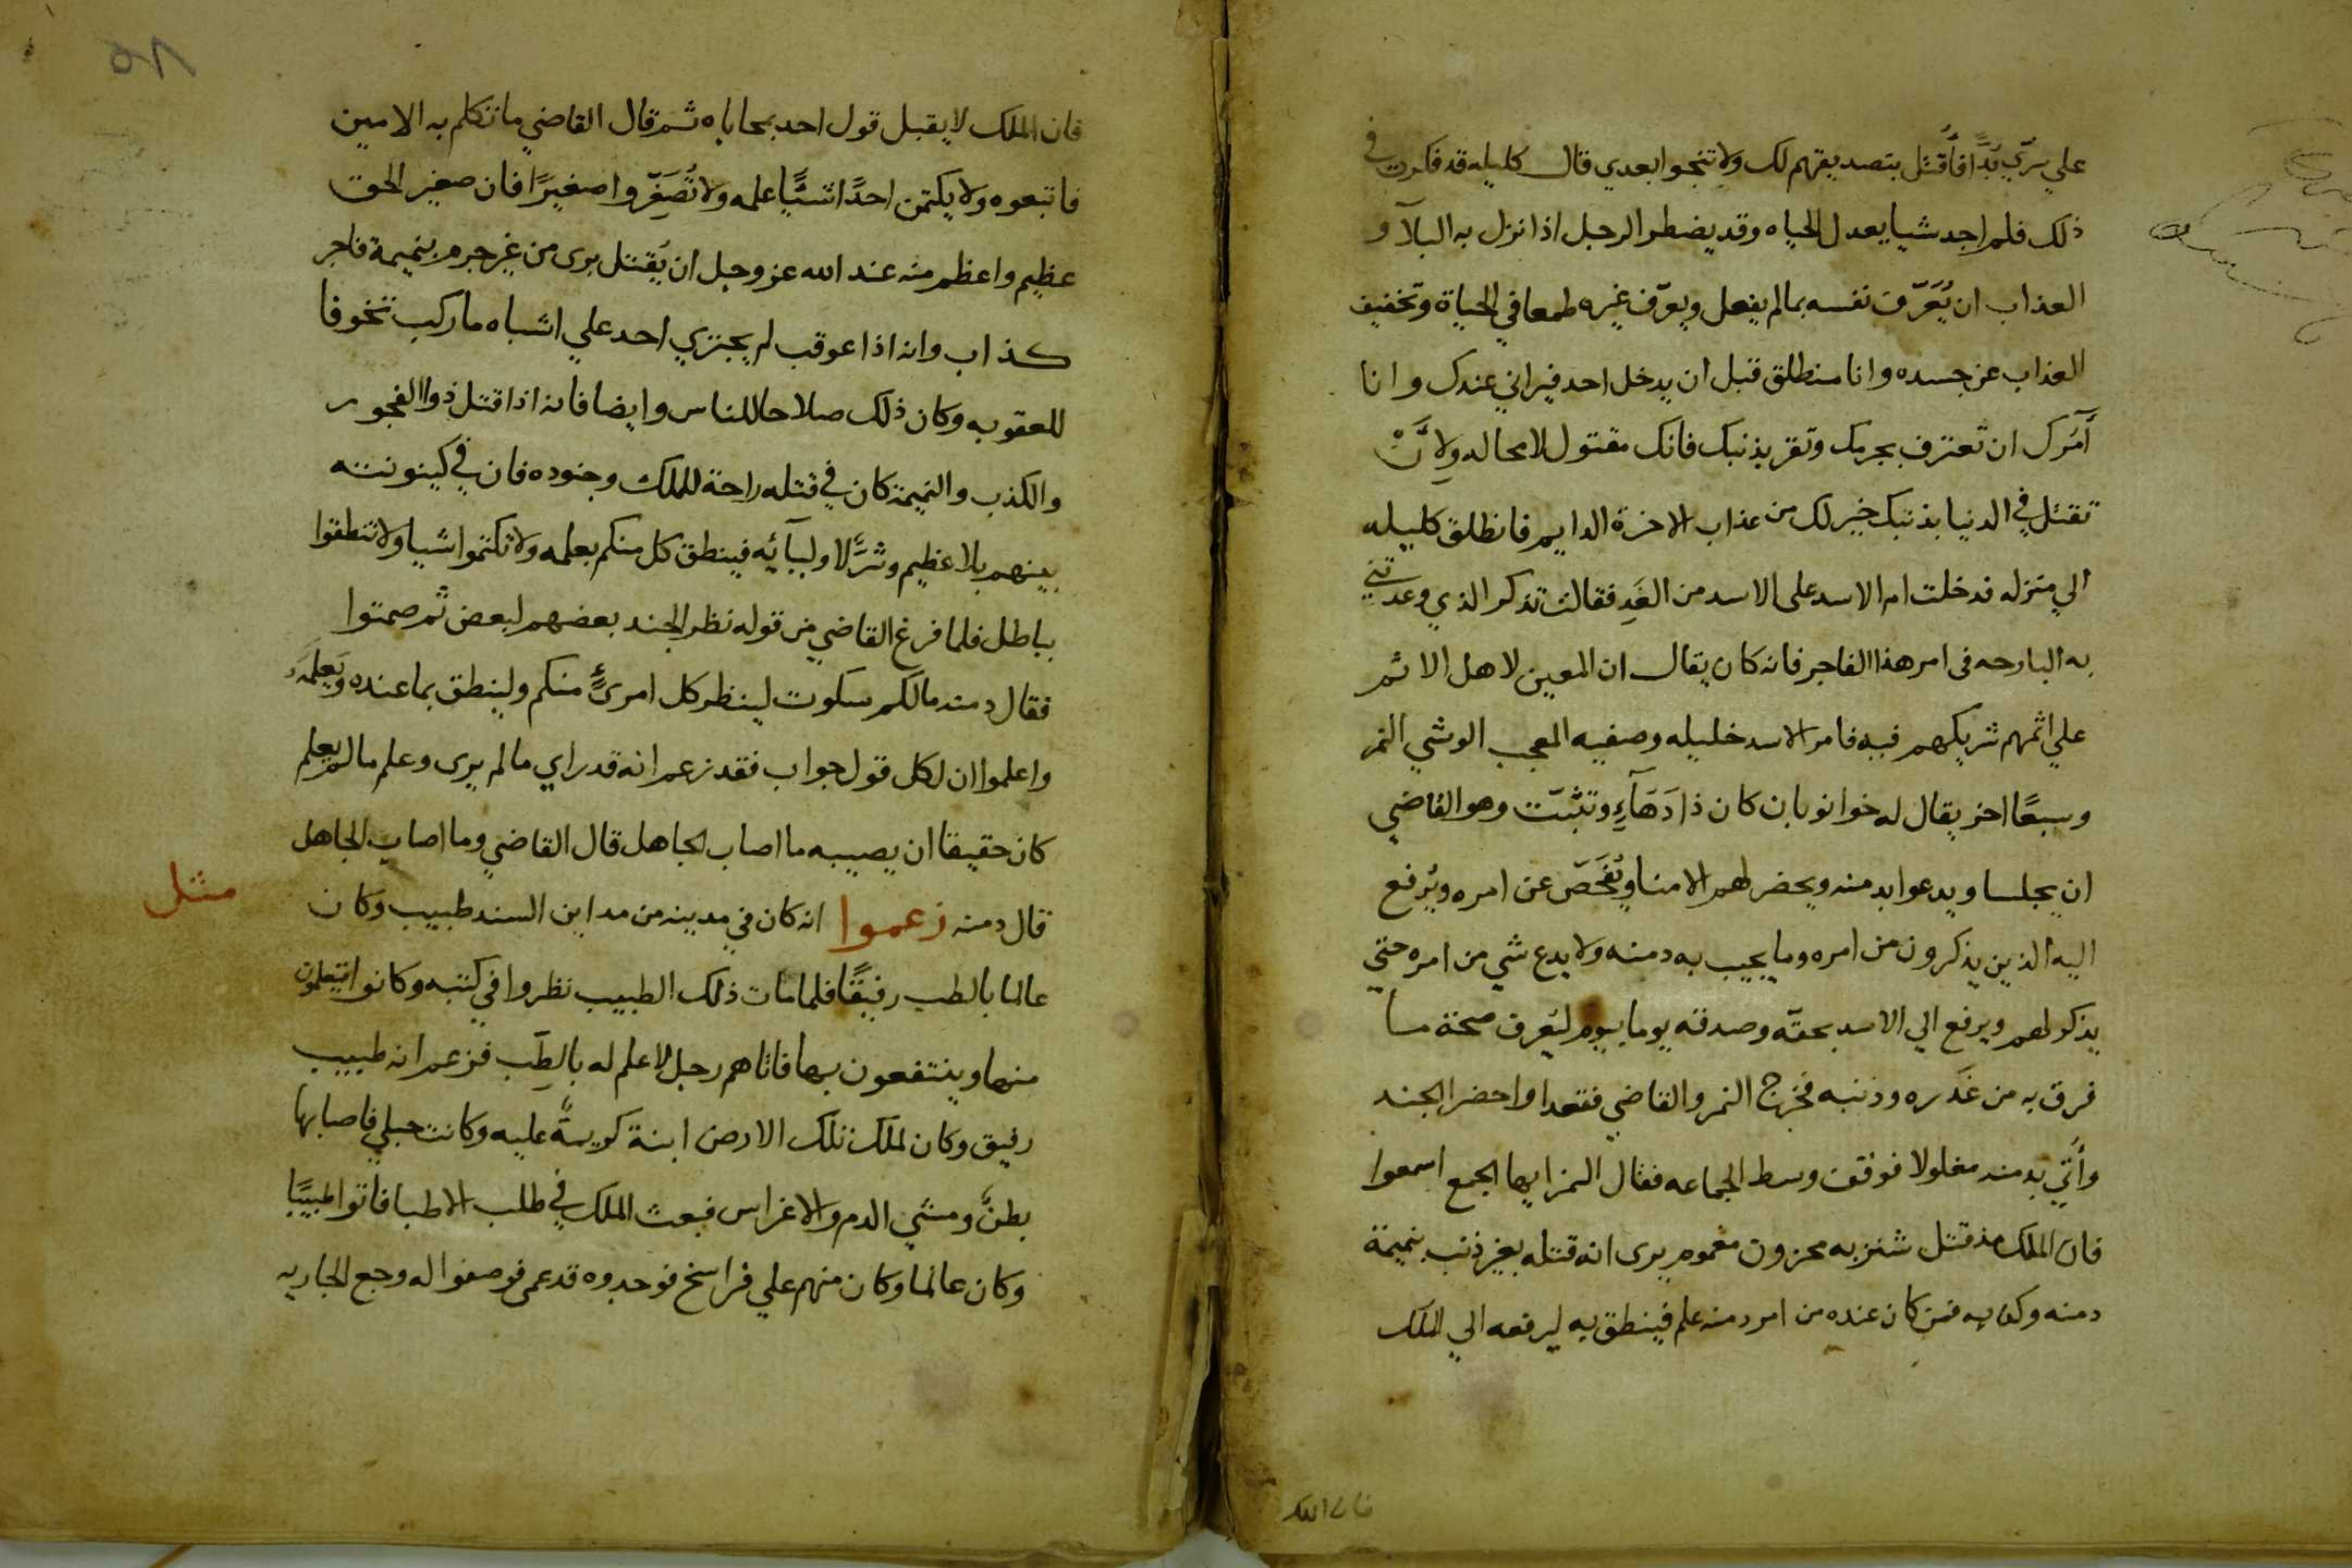 علي سرّي بُدًّا فأُقتَل بتصديقهم لك ولا تنجوا بعدي قال كليله قد فكرت في
ذلك فلم اجد شيا يعدل الحياه وقد يضطر الرجل اذا نزل به البلآ و
العذاب ان يُعَرّف نفسه بمالم يفعل ويعرّف غيره طمعا في الحياة وتخفيف
العذاب عن جسده وانا منطلق قبل ان يدخل احد فيراني عندك وانا
أٓمرك ان تعترف بجرمك وتقر بذنبك فانك مقتول لا محاله ولأنْ
تقتل في الدنيا بذنبك خير لك من عذاب الاخرة الدايم فانطلق كليله
الي منزله فدخلت ام الاسد على الاسد من الغَدِ فقالت تذكر الذي وعدتني
به البارحه في امر هذا الفاجر فانه كان يقال ان المعين لاهل الاثم
علي اثمهم شريكهم فيه فامر الاسد خليله وصفيه المعجب الوشي النمر
وسبعًا اخر يقال له خوانوبان كان ذا دَهَآءٍ وتثبّت وهو القاضي
ان يجلسا ويدعوا بدمنه ويحضر لهم الامنا ويُفحَصّ عن امره ويُرفع
اليه الذين يذكرون من امره وما يجيب به دمنه ولا يدع شي من امره حتي
يذكر لهم ويرفع الي الاسد بحقّه وصدقه يوما بيوم ليَعرف صحة ما
فرق به من غَدره وذنبه فخرج النمر والقاضي فقعدا واحضر الجند
وأُتي بدمنه مغلولا فوقف وسط الجماعه فقال النمر ايها الجمع اسمعوا
فان الملك مذ قتل شنزبه محزون مغموم يرى انه قتله بغير ذنب بنميمة
دمنه وكذبه فمن كان عنده من امر دمنه علم فينطق به ليرفعه الي الملك
فان الملك
٨٦
فان الملك لا يقبل قول احد بمحاباه ثم قال القاضي ما تكلم به الامين
فاتبعوه ولا يكتمن احدًا شيًّا علمه ولا تُصَغِّروا صغيرًا فان صغير الحق
عظيم واعظم منه عند الله عز وجل ان يُقتل برى من غير جرم بنميمة فاجر
كذاب وانه اذا عوقب لم يجتري احد علي اشباه ما ركب تخوفا
للعقوبه وكان ذلك صلاحا للناس وايضا فانه اذا قتل ذوا الفجور
والكذب والنميمة كان في قتله راحة للملك وجنوده فان في كينونته
بينهم بلا عظيم وشرًّ لاوليآئه فينطق كل منكم بعلمه ولا تكتموا شيا ولا تنطقوا
بباطل فلما فرغ القاضي من قوله نظر الجند بعضهم لبعض ثم صمتوا
فقال دمنه مالكم سكوت لينظر كل امرئٍ منكم ولينطق بما عنده ويعلمه
واعلموا ان لكل قول جواب فقد زعم انه قد راي ما لم يرى وعلم مالم يعلم
كان حقيقا ان يصيبه ما اصاب الجاهل قال القاضي وما اصاب الجاهل
مثل
قال دمنه زعموا انه كان في مدينه من مداين السند طبيب وكان
عالما بالطب رفيقًا فلما مات ذلك الطبيب نظروا في كتبه وكانوا يتعلمون
منها وينتفعون بها فاتاهم رجل لا علم له بالطِّب فزعم انه طبيب
رفيق وكان لملك تلك الارض ابنة كريمةً عليه وكانت حبلي فاصابها
بطنٌ ومشي الدم والاغراس فبعث الملك في طلب الاطبا فاتوا طبيبًا
وكان عالما وكان منهم علي فراسخ فوجدوه قد عمى فوصفوا له وجع الجاريه